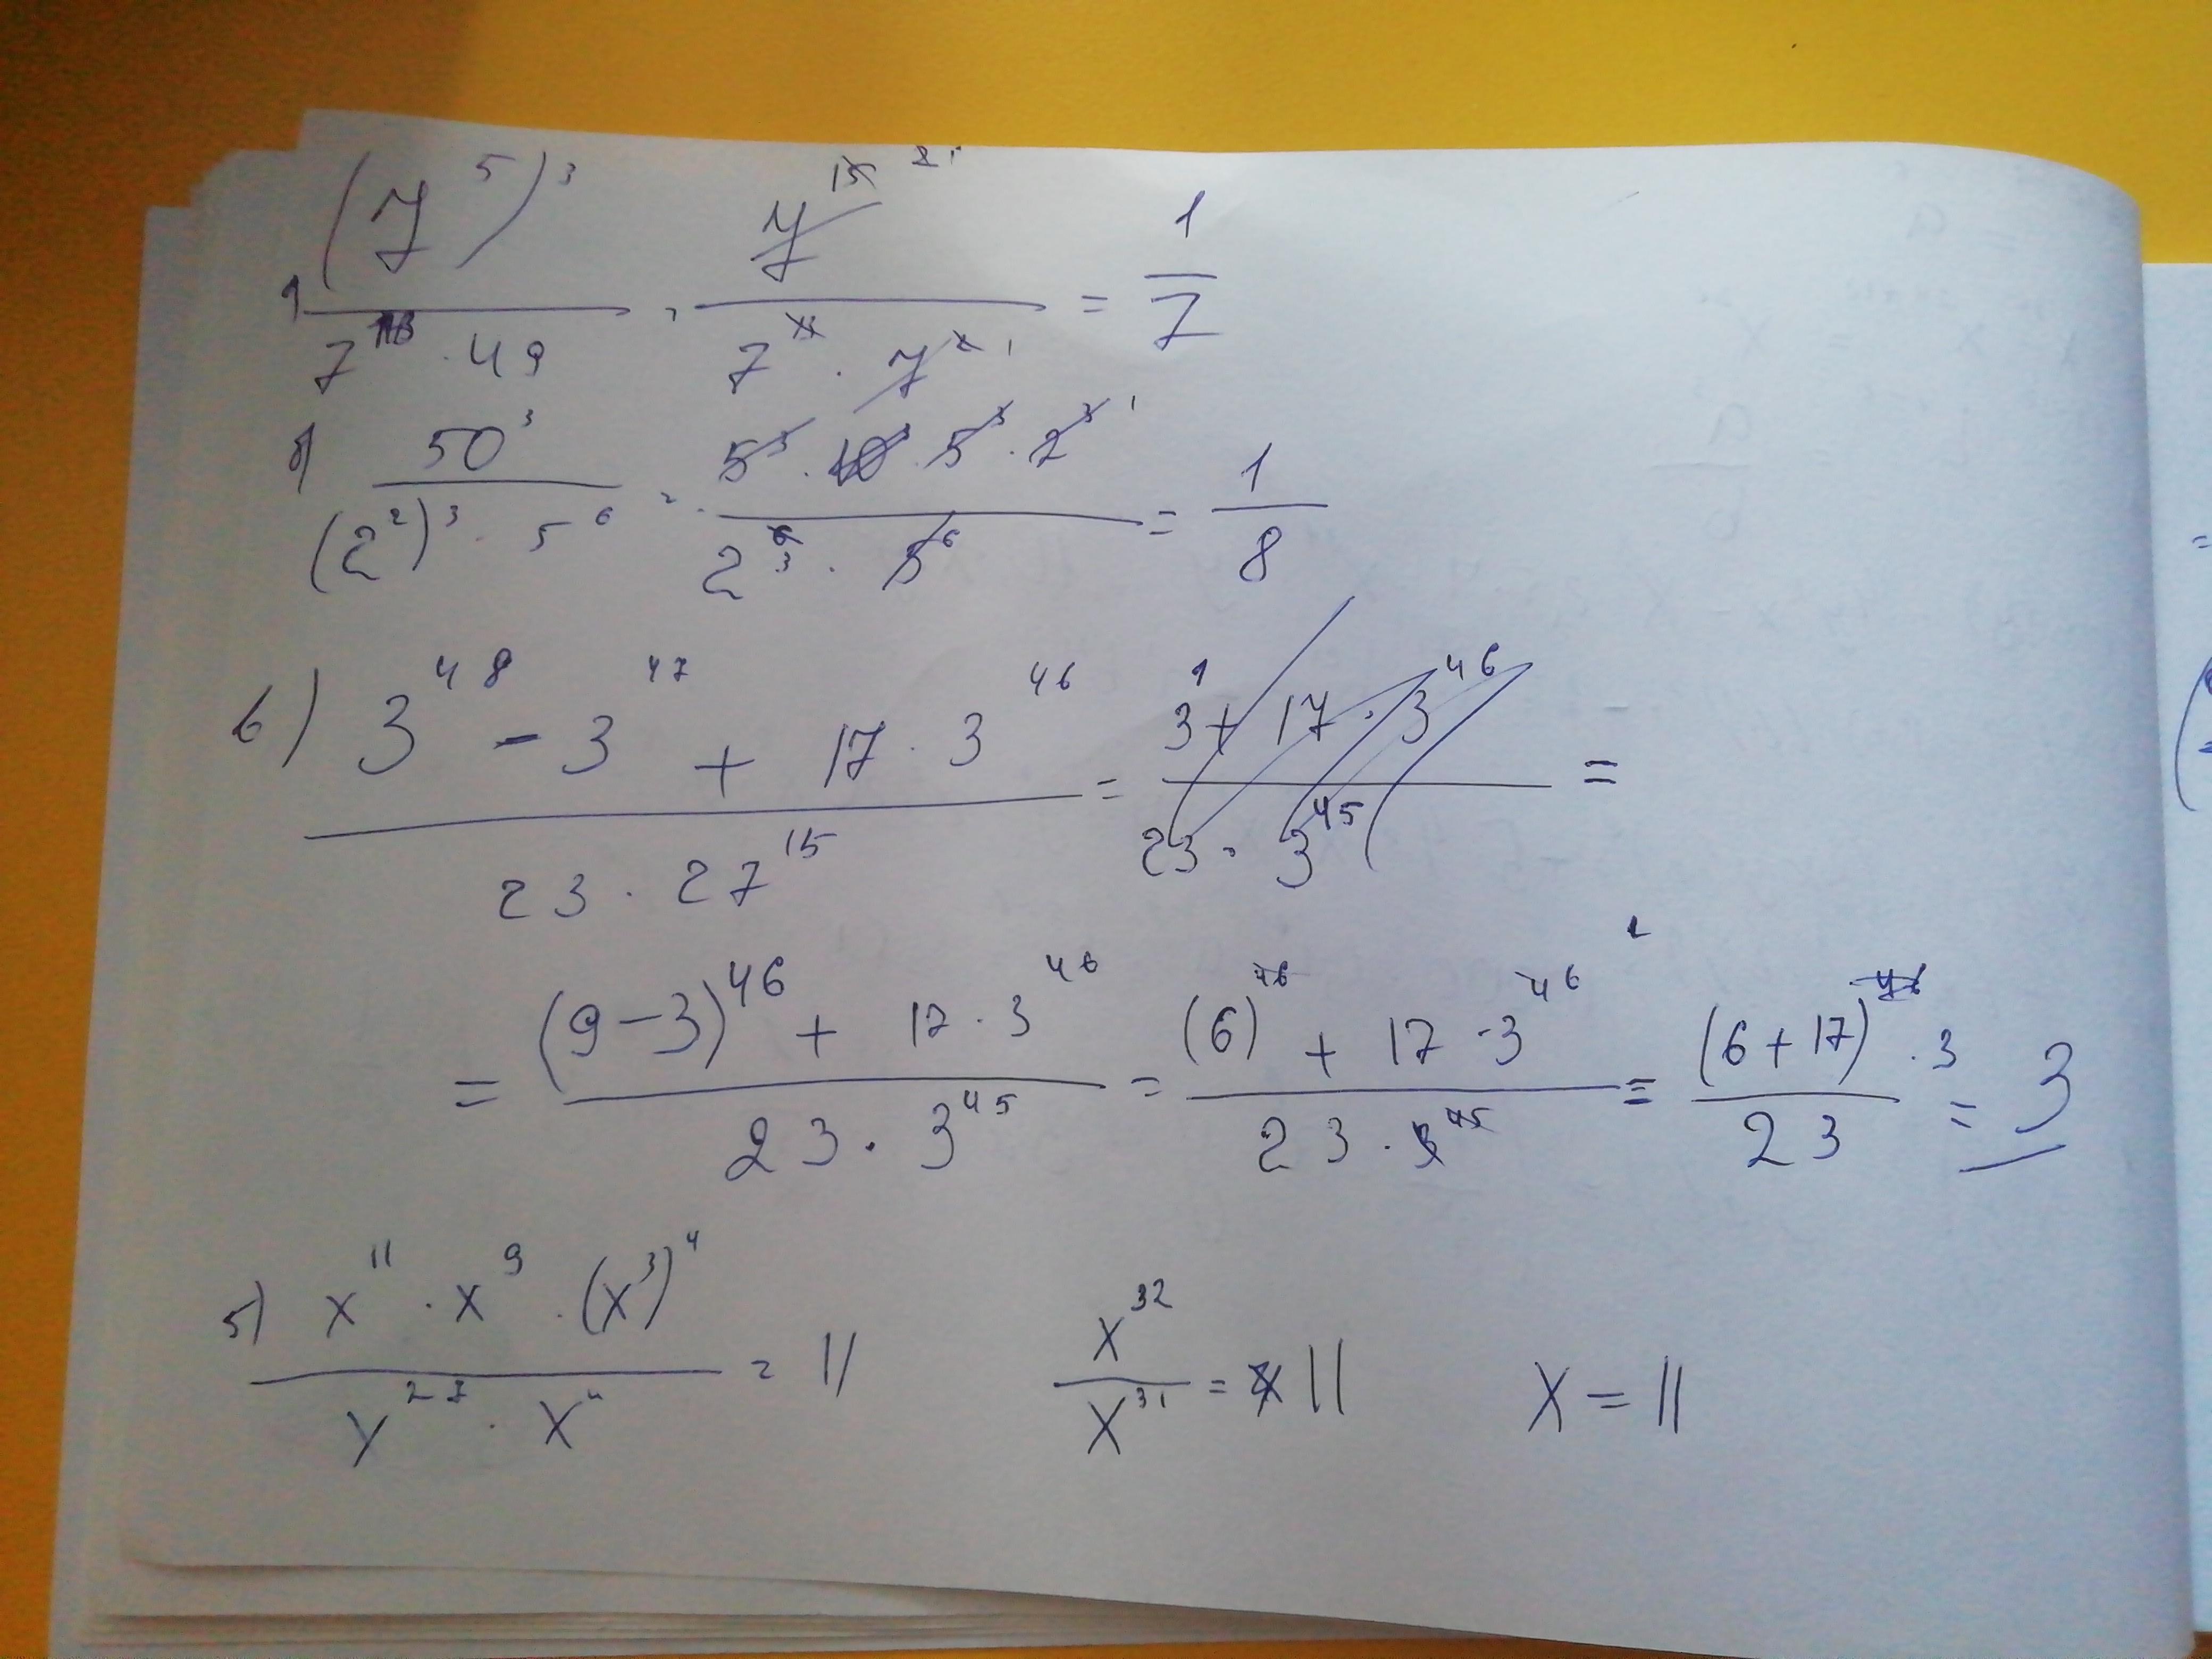 (7^5)^3 / 7 · 49 = 7^15 / 7 · 7^2 = 1/7
б) 50^3 / (2^2)^3 · 5^6 = 5^3 · 5^3 · 2^3 / 2^3 · 5^6 = 1/8
в) 3^48 - 3^47 + 17 · 3^46 / 23 · 27^15 = 3^1 + 17 · 3^46 / 23 · 3^45 =
= (9-3)^46 + 17 · 3^46 / 23 · 3^45 = (6)^46 + 17 · 3^46 / 23 · 3^45 = (6+17)^46 · 3 / 23 = 3
5) x^11 · x^9 · (x^3)^4 / · x^4 = 11    x^32 / x^31 = 11    x = 11